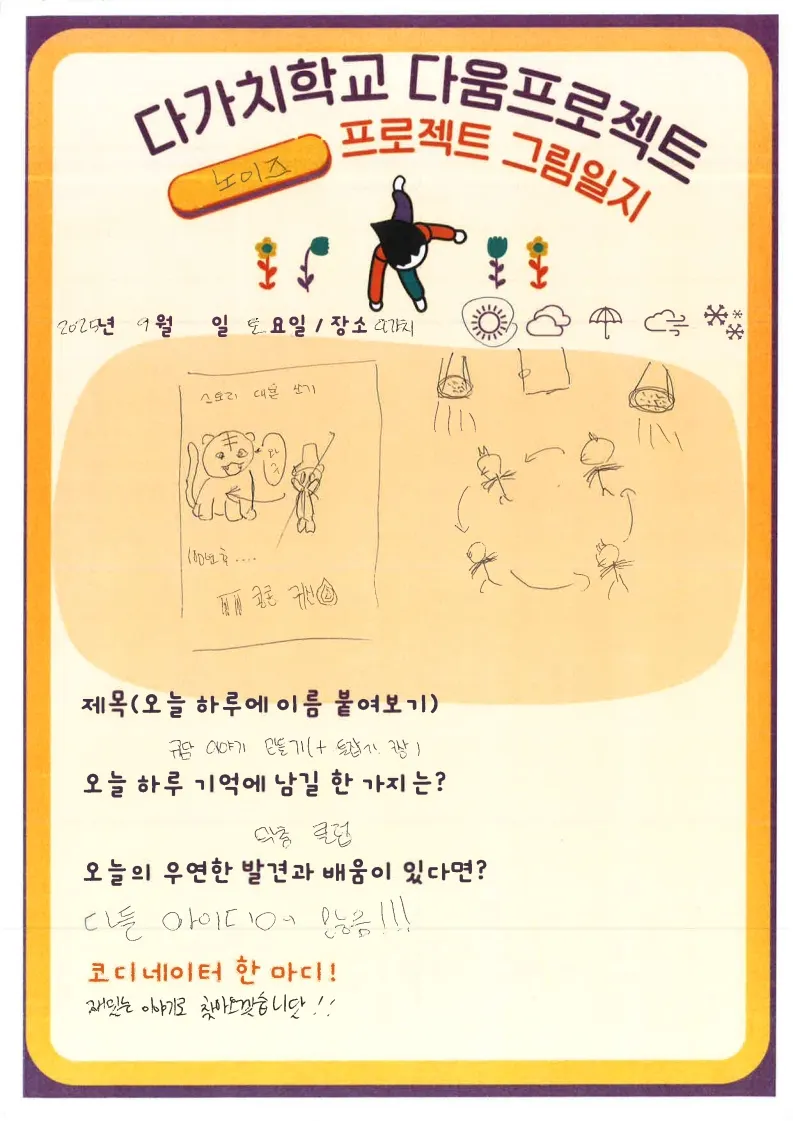 다가치학교 다움프로젝트
프로젝트 그림일지
노이즈
2025년 9월 일 토요일 / 장소 다가치
스토리 대본 쓰기
제목(오늘 하루에 이름 붙여보기)
괴담 이야기 만들기(+
오늘 하루 기억에 남길 한 가지는?
클럽
오늘의 우연한 발견과 배움이 있다면?
다들 아이디어
코디네이터 한 마디!
재밌는 이야기로 찾아오겠습니닷!!